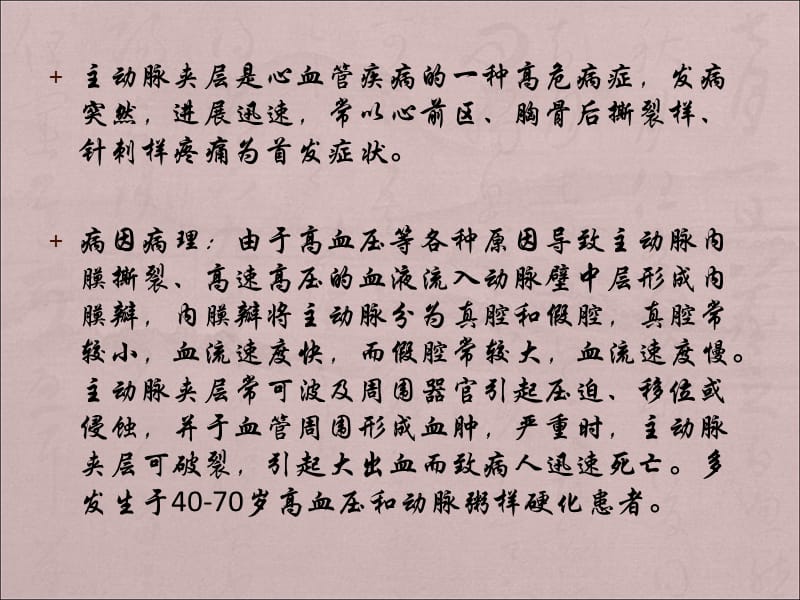 主动脉夹层是心血管疾病的一种高危病症，发病
突然，进展迅速，常以心前区、胸骨后撕裂样、
针刺样疼痛为首发症状。
病因病理：由于高血压等各种原因导致主动脉内
膜撕裂、高速高压的血液流入动脉壁中层形成内
膜瓣，内膜瓣将主动脉分为真腔和假腔，真腔常
较小，血流速度快，而假腔常较大，血流速度慢。
主动脉夹层常可波及周围器官引起压迫、移位或
侵蚀，并于血管周围形成血肿，严重时，主动脉
夹层可破裂，引起大出血而致病人迅速死亡。多
发生于40-70岁高血压和动脉粥样硬化患者。